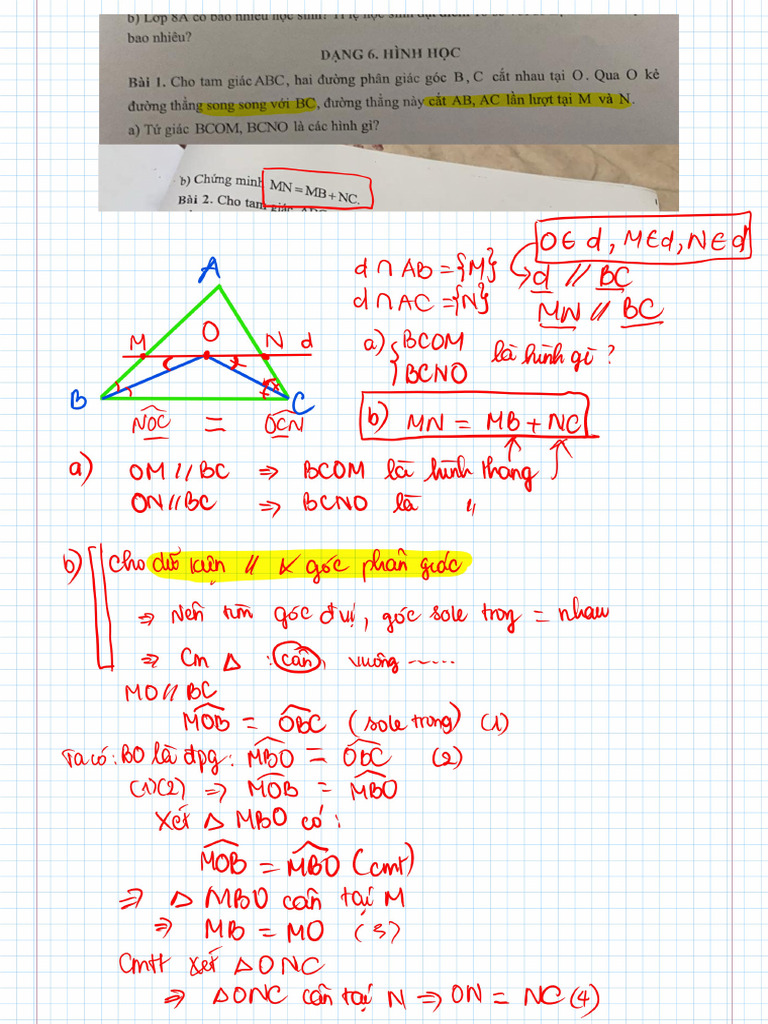 b) Lớp 8A có bao nhiêu học sinh?
bao nhiêu?
DẠNG 6. HÌNH HỌC
Bài 1. Cho tam giác ABC, hai đường phân giác góc B, C cắt nhau tại O. Qua O kẻ
đường thẳng song song với BC, đường thẳng này cắt AB, AC lần lượt tại M và N.
a) Tứ giác BCOM, BCNO là các hình gì?
b) Chứng minh MN = MB + NC.
Bài 2. Cho tam giác
O ∈ d, M ∈ d, N ∈ d
d ∩ AB = {M}
d // BC
d ∩ AC = {N}
MN // BC
A
M O N d
B C
a) { BCOM
BCNO
là hình gì?
NOC = OCN
b) MN = MB + NC
a) OM // BC ⇒ BCOM là hình thang
ON // BC ⇒ BCNO là "
b) Cho dữ kiện // & góc phân giác
⇒ Nên tìm góc đvị, góc sole trong = nhau
⇒ Cm Δ : cân, vuông ......
MO // BC
MOB = OBC (sole trong) (1)
Ta có: BO là đpg: MBO = OBC (2)
(1)(2) ⇒ MOB = MBO
Xét Δ MBO có:
MOB = MBO (cmt)
⇒ Δ MBO cân tại M
⇒ MB = MO (3)
Cmtt xét Δ ONC
⇒ Δ ONC cân tại N ⇒ ON = NC (4)